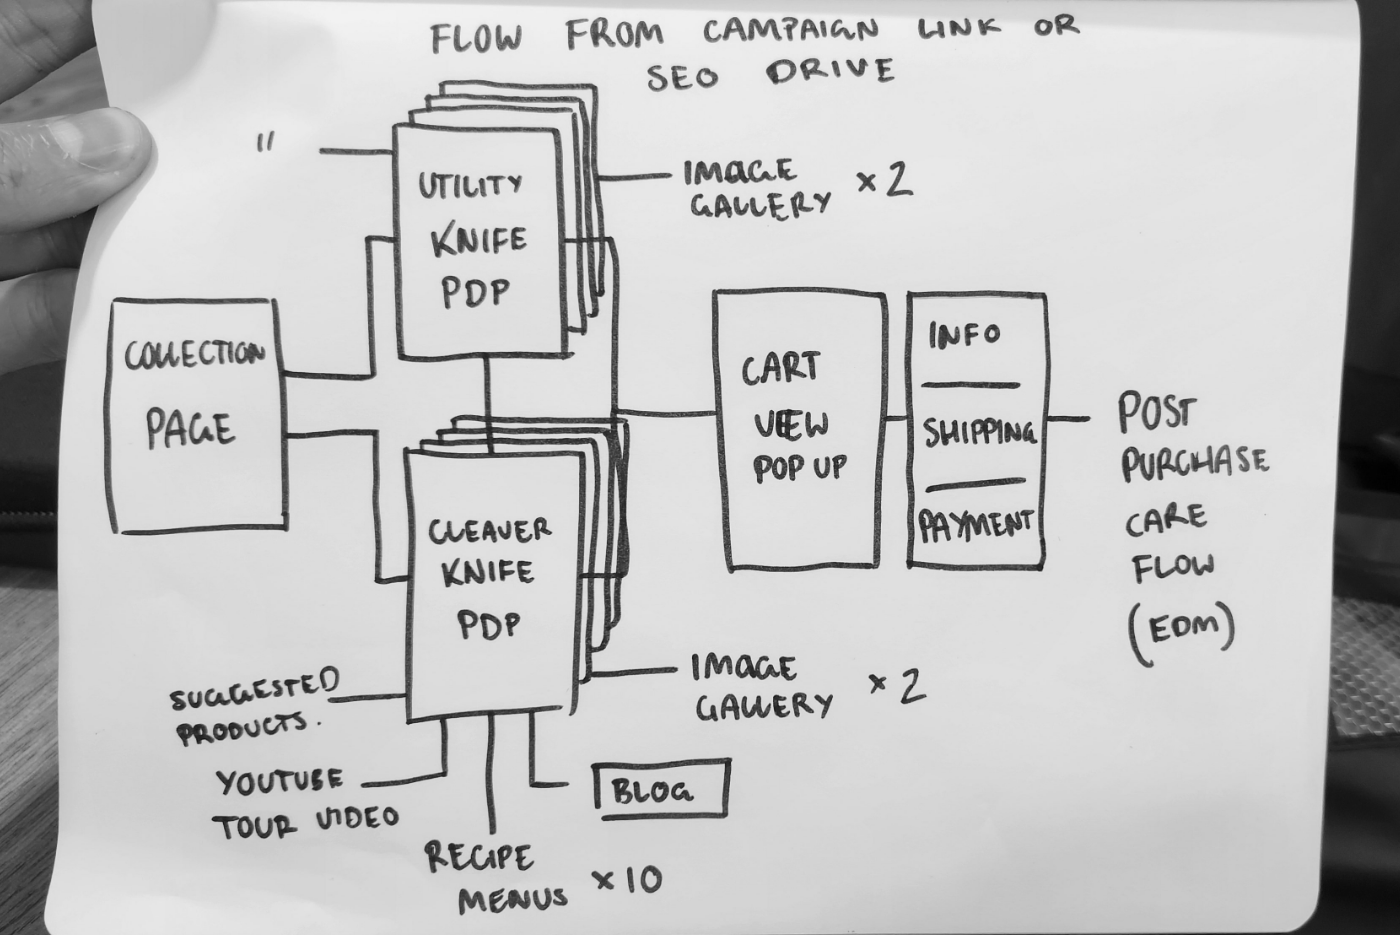 FLOW FROM CAMPAIGN LINK OR
SEO DRIVE
"
UTILITY
KNIFE
PDP
IMAGE
GALLERY x2
COLLECTION
PAGE
CART
VIEW
POP UP
INFO
SHIPPING
PAYMENT
POST
PURCHASE
CARE
FLOW
(EDM)
CLEAVER
KNIFE
PDP
IMAGE
GALLERY x2
SUGGESTED
PRODUCTS.
YOUTUBE
TOUR VIDEO
BLOG
RECIPE
MENUS x10